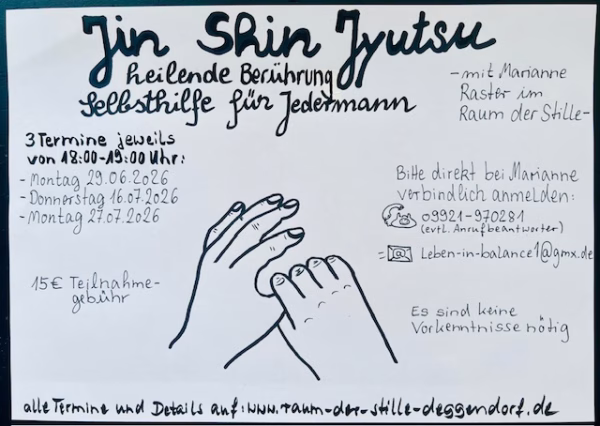 Jin Shin Jyutsu
heilende Berührung
Selbsthilfe für Jedermann
-mit Marianne
Raster im
Raum der Stille-
3 Termine jeweils
von 18:00-19:00 Uhr:
- Montag 29.06.2026
- Donnerstag 16.07.2026
- Montag 27.07.2026
15€ Teilnahme-
gebühr
Bitte direkt bei Marianne
verbindlich anmelden:
09921-970281
(evtl. Anrufbeantworter)
= Leben-in-balance1@gmx.de
Es sind keine
Vorkenntnisse nötig
alle Termine und Details auf: www.raum-der-stille-deggendorf.de